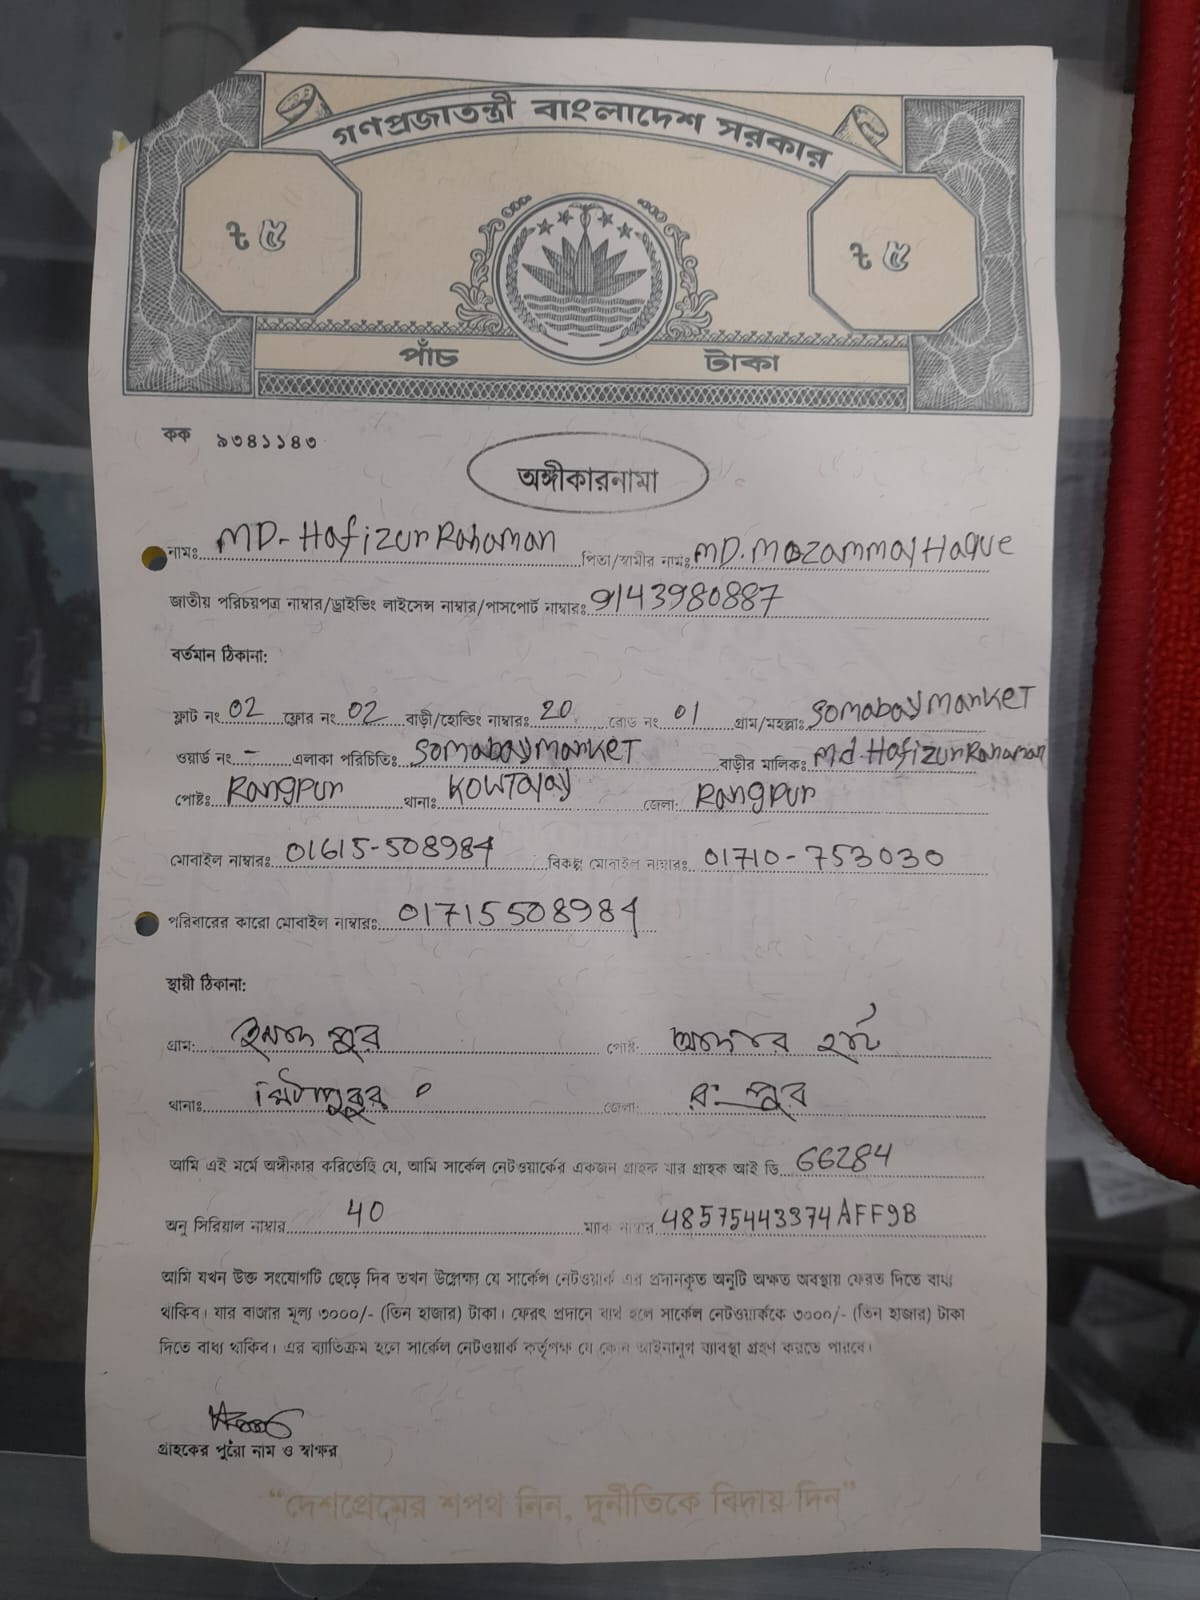 গণপ্রজাতন্ত্রী বাংলাদেশ সরকার
৳ ৫ ৳ ৫
পাঁচ টাকা
কক ৯৩৪১১৪৩
অঙ্গীকারনামা
নামঃ MD- Hafizur Rahaman পিতা/স্বামীর নামঃ MD. Mozammal Haque
জাতীয় পরিচয়পত্র নাম্বার/ড্রাইভিং লাইসেন্স নাম্বার/পাসপোর্ট নাম্বারঃ 9143980887
বর্তমান ঠিকানা:
ফ্লাট নং 02 ফ্লোর নং 02 বাড়ী/হোল্ডিং নাম্বারঃ 20 রোড নং 01 গ্রাম/মহল্লাঃ Somabay Market
ওয়ার্ড নং - এলাকা পরিচিতিঃ Somabay Market বাড়ীর মালিকঃ Md. Hafizur Rahaman
পোষ্টঃ Rangpur থানাঃ Kowtalay জেলা: Rangpur
মোবাইল নাম্বারঃ 01615-508984 বিকল্প মোবাইল নাম্বারঃ 01710-753030
পরিবারের কারো মোবাইল নাম্বারঃ 01715508984
স্থায়ী ঠিকানা:
গ্রাম: পুর পোষ্ট: হাট
থানাঃ মিঠাপুকুর জেলা: রংপুর
আমি এই মর্মে অঙ্গীকার করিতেছি যে, আমি সার্কেল নেটওয়ার্কের একজন গ্রাহক যার গ্রাহক আই ডি 66284
অনু সিরিয়াল নাম্বার 40 ম্যাক নাম্বার 48575443374AFF9B
আমি যখন উক্ত সংযোগটি ছেড়ে দিব তখন উল্লেখ্য যে সার্কেল নেটওয়ার্ক এর প্রদানকৃত অনুটি অক্ষত অবস্থায় ফেরত দিতে বাধ্য
থাকিব। যার বাজার মূল্য ৩০০০/- (তিন হাজার) টাকা। ফেরৎ প্রদানে ব্যর্থ হলে সার্কেল নেটওয়ার্ককে ৩০০০/- (তিন হাজার) টাকা
দিতে বাধ্য থাকিব। এর ব্যতিক্রম হলে সার্কেল নেটওয়ার্ক কর্তৃপক্ষ যে কোন আইনানুগ ব্যাবস্থা গ্রহণ করতে পারবে।
গ্রাহকের পুরো নাম ও স্বাক্ষর
"দেশপ্রেমের শপথ নিন, দুর্নীতিকে বিদায় দিন"